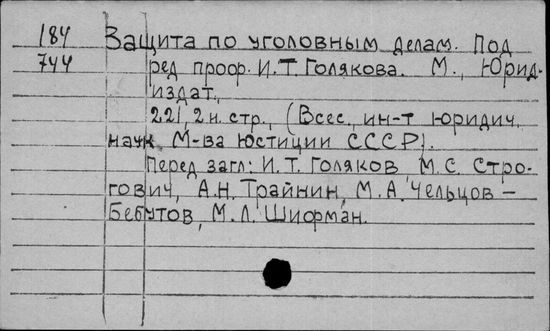 184 Защита по уголовным делам. Под
744 ред проф. И.Т. Голякова. М., Юрид-
издат,
221, 2 н. стр., (Всес. ин-т юридич.
наук М-ва юстиции СССР).
Перед загл: И.Т. Голяков, М.С. Стро-
гович, А.Н. Трайнин, М.А. Чельцов –
Бебутов, М.Л. Шифман.